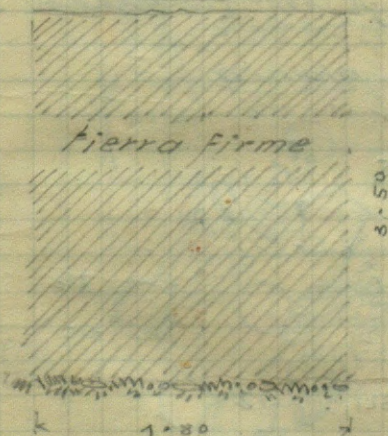 tierra firme
3·50
1·80